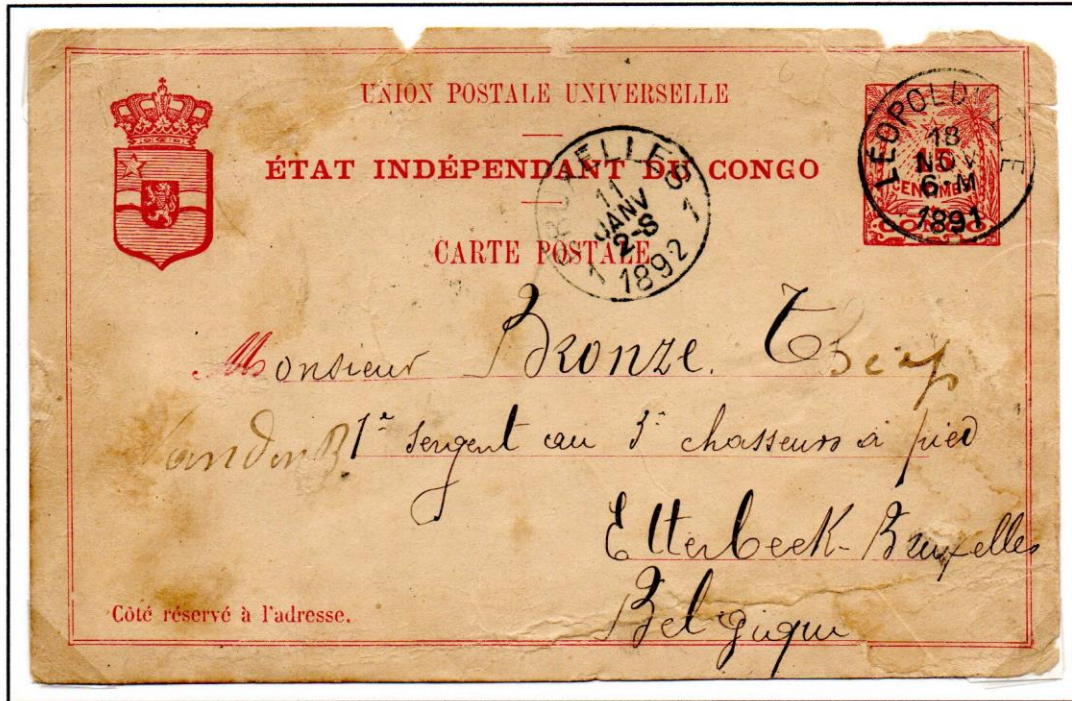 UNION POSTALE UNIVERSELLE
ÉTAT INDÉPENDANT DU CONGO
CARTE POSTALE
LÉOPOLDVILLE
18
NOV
6-M
1891
15
CENTIMES
CONGO
BRUXELLES
11
JANV
2-S
1892
1 1
Monsieur Bronze. T
1e sergent au 3e chasseurs à pied
Etterbeek-Bruxelles
Belgique
Côté réservé à l'adresse.